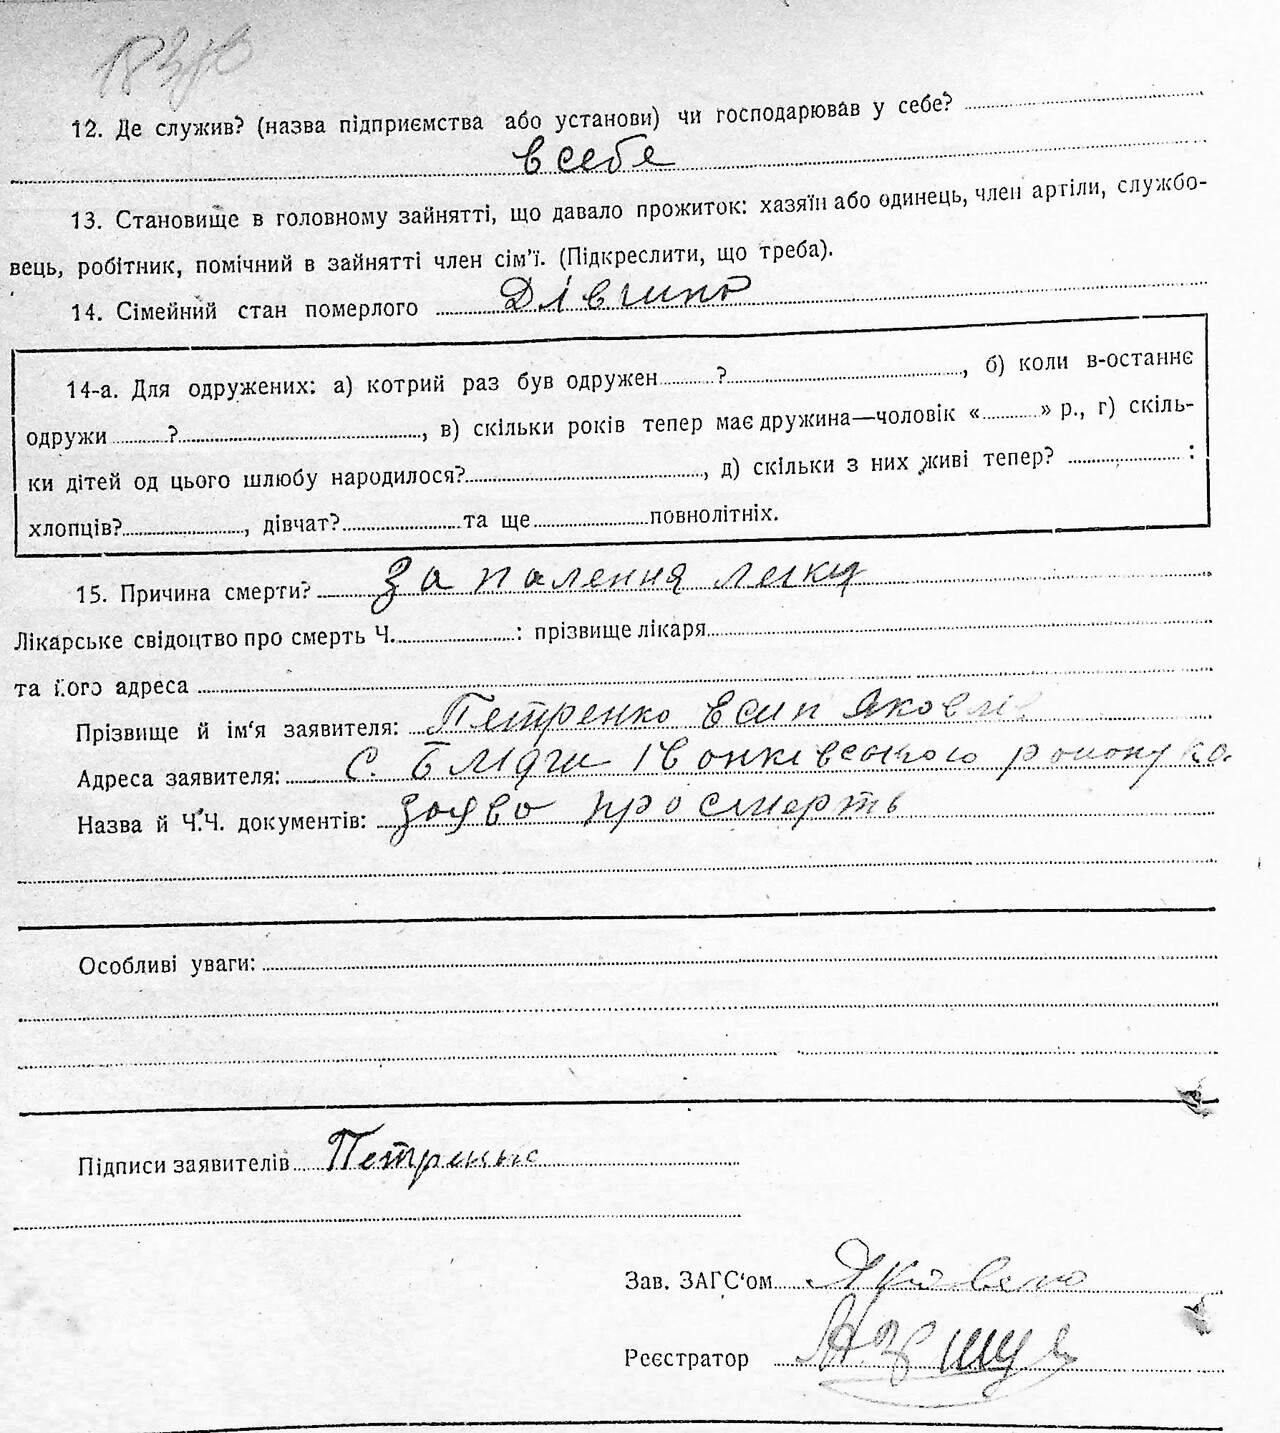 12. Де служив? (назва підприємства або установи) чи господарював у себе?
в себе
13. Становище в головному зайнятті, що давало прожиток: хазяїн або одинець, член артіли, службо-
вець, робітник, помічний в зайнятті член сім'ї. (Підкреслити, що треба).
14. Сімейний стан померлого Дівчина
14-а. Для одружених: а) котрий раз був одружен ? , б) коли в-останнє
одружи ? , в) скільки років тепер має дружина—чоловік « » р., г) скіль-
ки дітей од цього шлюбу народилося? , д) скільки з них живі тепер? :
хлопців? , дівчат? та ще повнолітніх.
15. Причина смерти? Запалення легку
Лікарське свідоцтво про смерть Ч. : прізвище лікаря
та його адреса
Прізвище й ім'я заявителя: Петренко Есип Яковлів
Адреса заявителя: с. Блідчи Іванківського району
Назва й Ч.Ч. документів: заява про смерть
Особливі уваги:
Підписи заявителів Петренко
Зав. ЗАГС'ом
Реєстратор